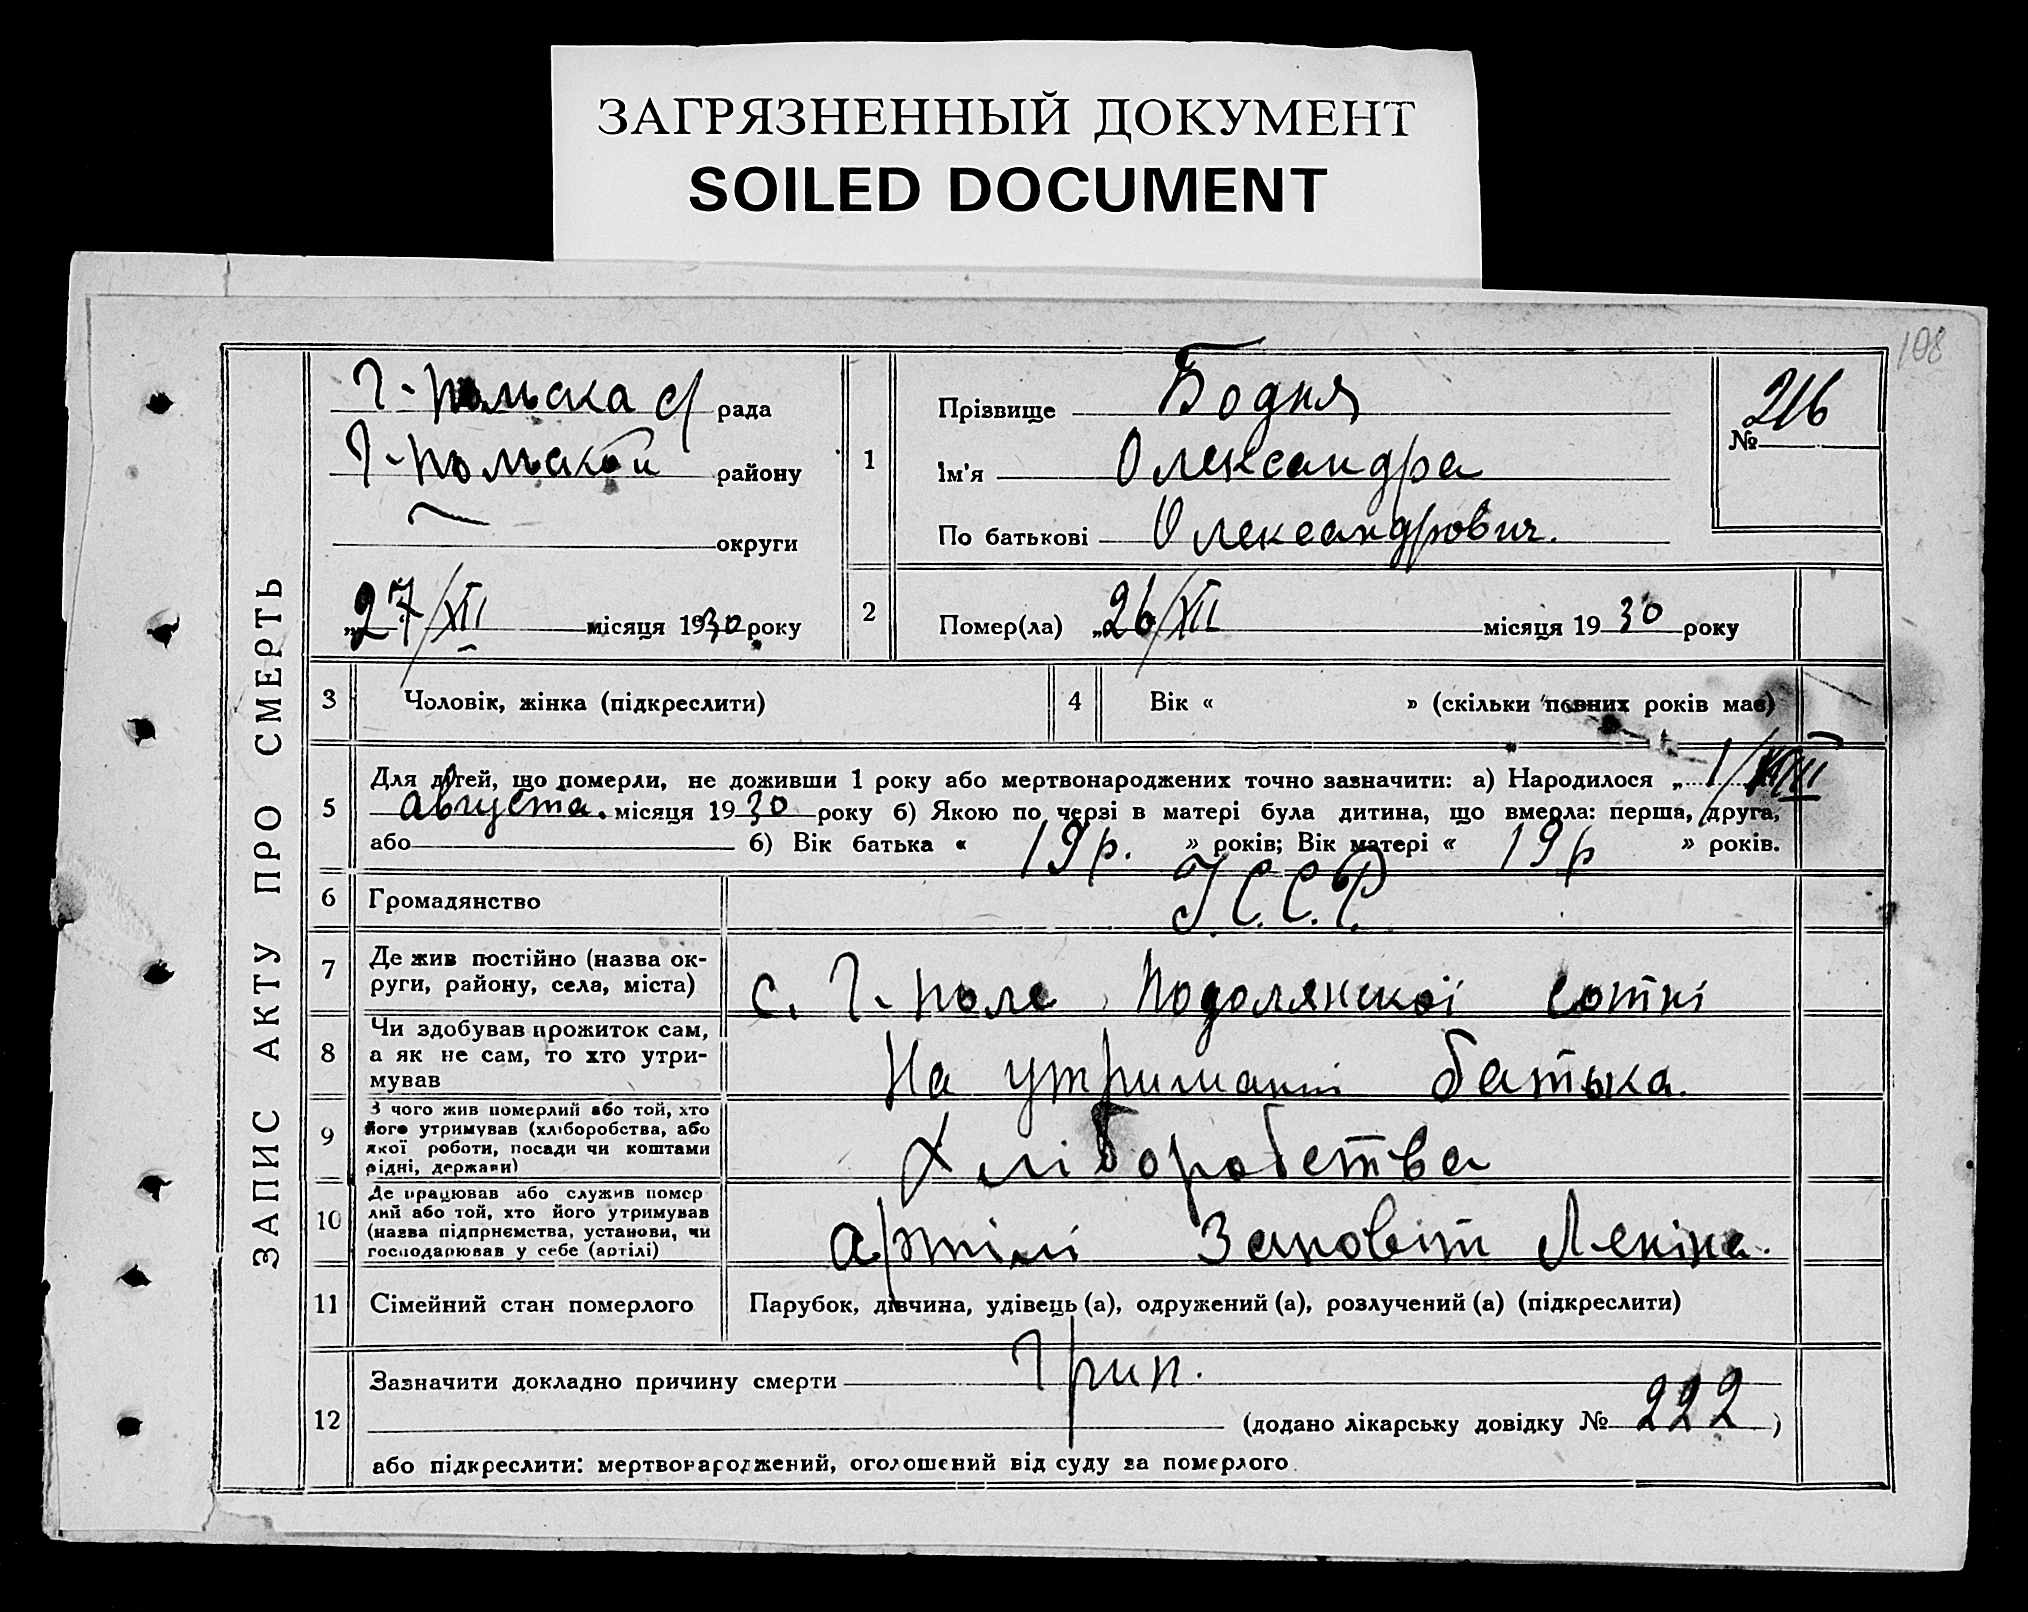 ЗАГРЯЗНЕННЫЙ ДОКУМЕНТ
SOILED DOCUMENT
108
ЗАПИС АКТУ ПРО СМЕРТЬ
Г-польска с/ рада
Г-польской району
округи
„27/XII місяця 1930 року
1
Прізвище Бодня
Ім'я Олександра
По батькові Олександрович.
№ 216
2 Помер(ла) „26/XII місяця 1930 року
3 Чоловік, жінка (підкреслити)
4 Вік « » (скільки повних років має)
5 Для дітей, що померли, не доживши 1 року або мертвонароджених точно зазначити: а) Народилося „ 1/VIII
августа. місяця 1930 року б) Якою по черзі в матері була дитина, що вмерла: перша, друга,
або б) Вік батька « 19р. » років; Вік матері « 19р » років.
6 Громадянство У.С.С.Р.
7 Де жив постійно (назва ок-
руги, району, села, міста)
с. Г-поле Подолянскої сотні
8 Чи здобував прожиток сам,
а як не сам, то хто утри-
мував
На утриманні батька.
9 З чого жив померлий або той, хто
його утримував (хліборобства, або
якої роботи, посади чи коштами
рідні, держави)
Хліборобства
10 Де працював або служив помер
лий або той, хто його утримував
(назва підприємства, установи, чи
господарював у себе (артілі)
артілі Заповіт Леніна.
11 Сімейний стан померлого Парубок, дівчина, удівець (а), одружений (а), розлучений (а) (підкреслити)
12 Зазначити докладно причину смерти Грип.
(додано лікарську довідку № 222 )
або підкреслити: мертвонароджений, оголошений від суду за померлого.